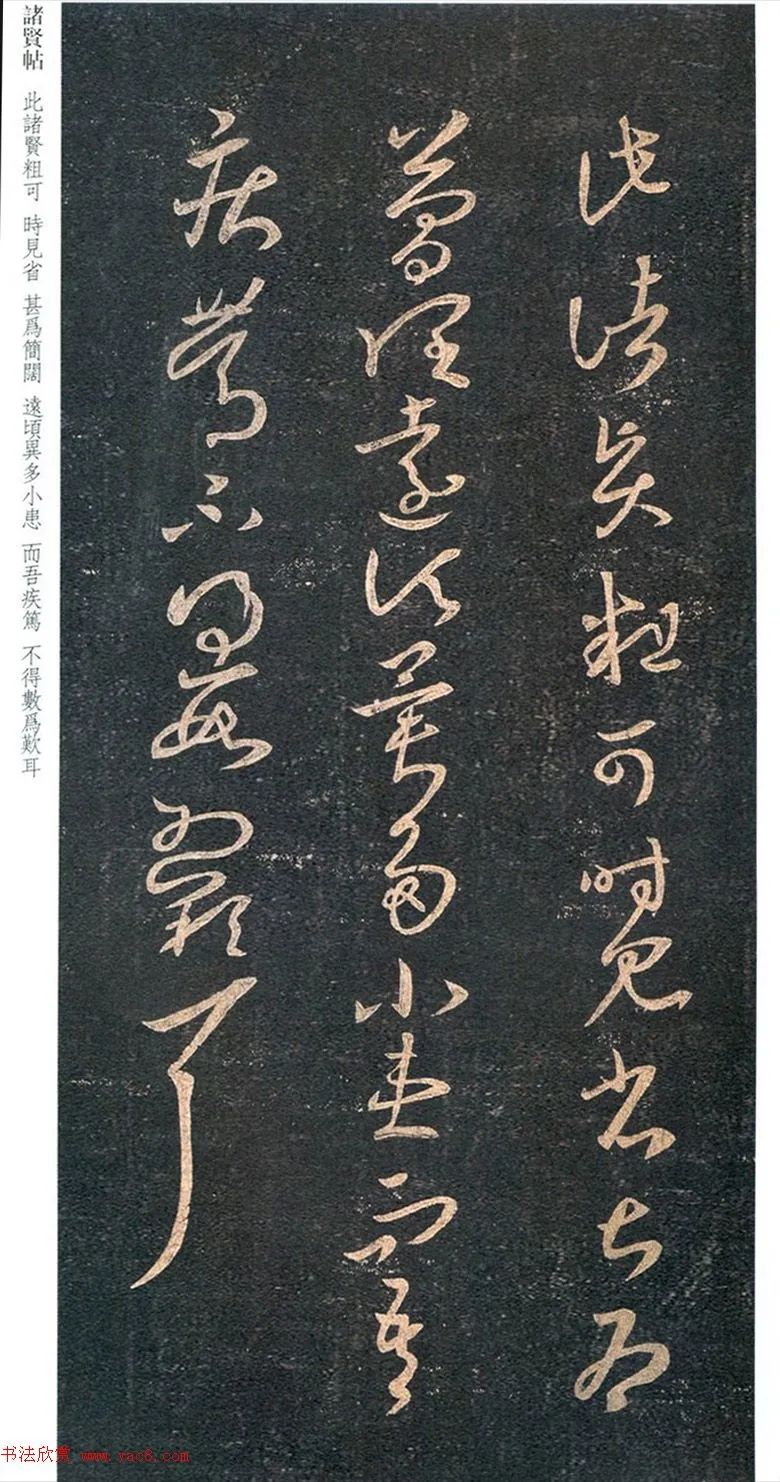 諸賢帖 此諸賢粗可 時見省 甚爲簡闊 遠頃異多小患 而吾疾篤 不得數爲歎耳
此諸賢粗可時見省甚爲
簡闊遠頃異多小患而吾
疾篤不得數爲歎耳
书法欣赏 www.yac8.com